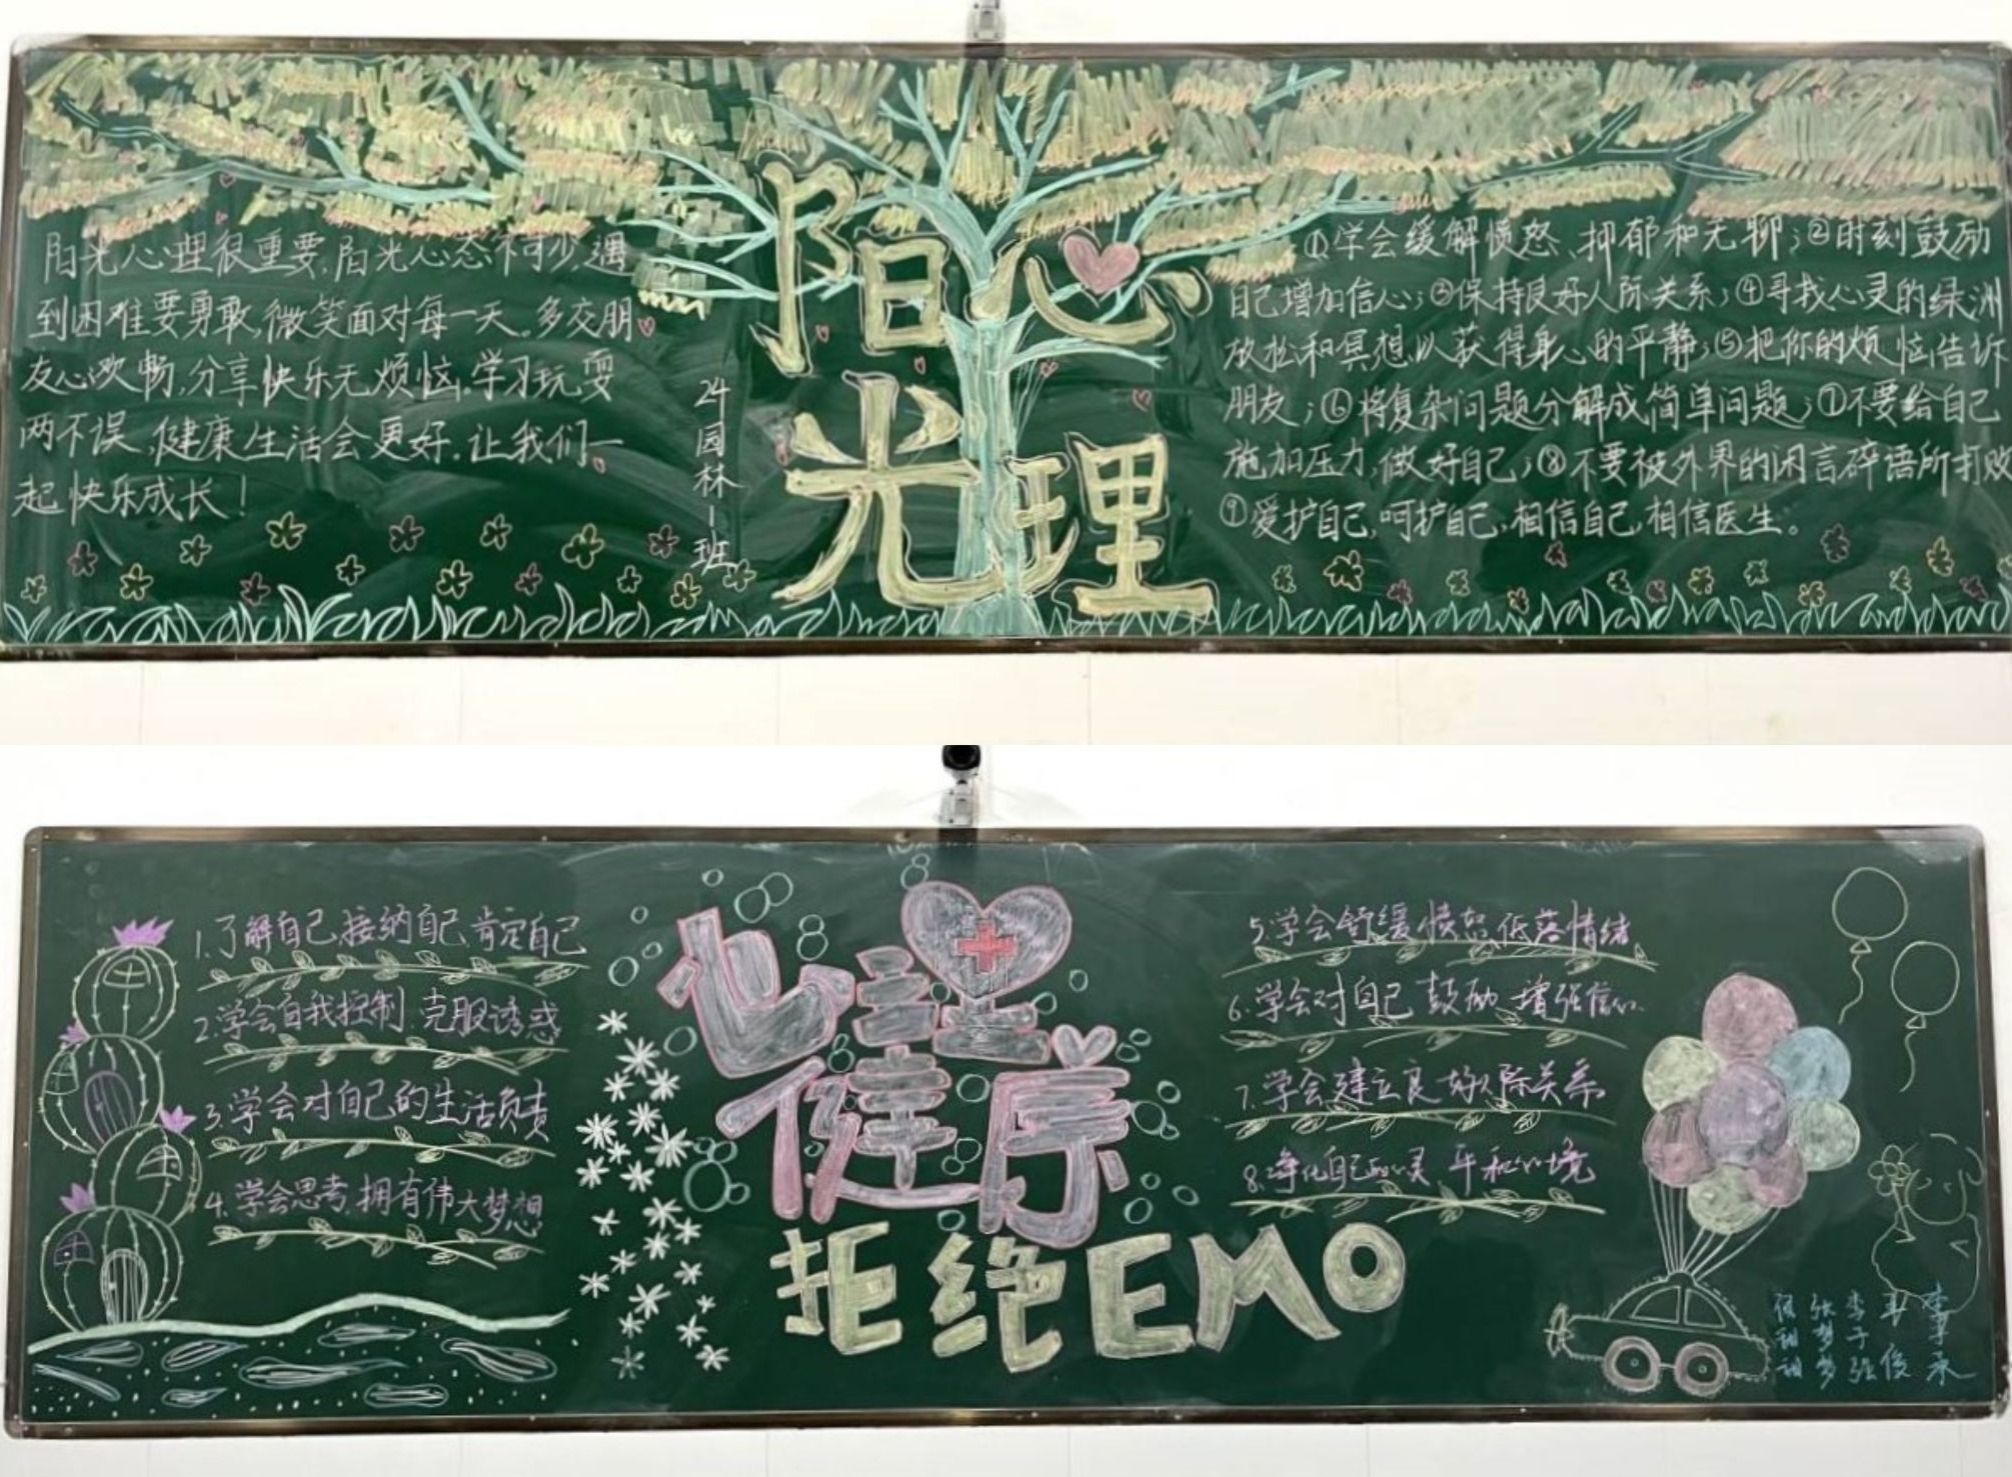 阳光心理很重要,阳光心态不可少,遇
到困难要勇敢,微笑面对每一天。多交朋
友心欢畅,分享快乐无烦恼。学习玩耍
两不误,健康生活会更好。让我们一
起快乐成长!
24园林一班
阳光
心理
①学会缓解愤怒、抑郁和无聊;②时刻鼓励
自己增加信心;③保持良好人际关系;④寻找心灵的绿洲
放松和冥想以获得身心的平静;⑤把你的烦恼告诉
朋友;⑥将复杂问题分解成简单问题;⑦不要给自己
施加压力,做好自己;⑧不要被外界的闲言碎语所打败
⑨爱护自己,呵护自己,相信自己,相信医生。
1.了解自己 接纳自己 肯定自己
2.学会自我控制 克服诱惑
3.学会对自己的生活负责
4.学会思考,拥有伟大梦想
心理
健康
拒绝EMO
5.学会舒缓愤怒 低落情绪
6.学会对自己鼓励 增强信心
7.学会建立良好人际关系
8.净化自己心灵 平和心境
张梦梦
李子强